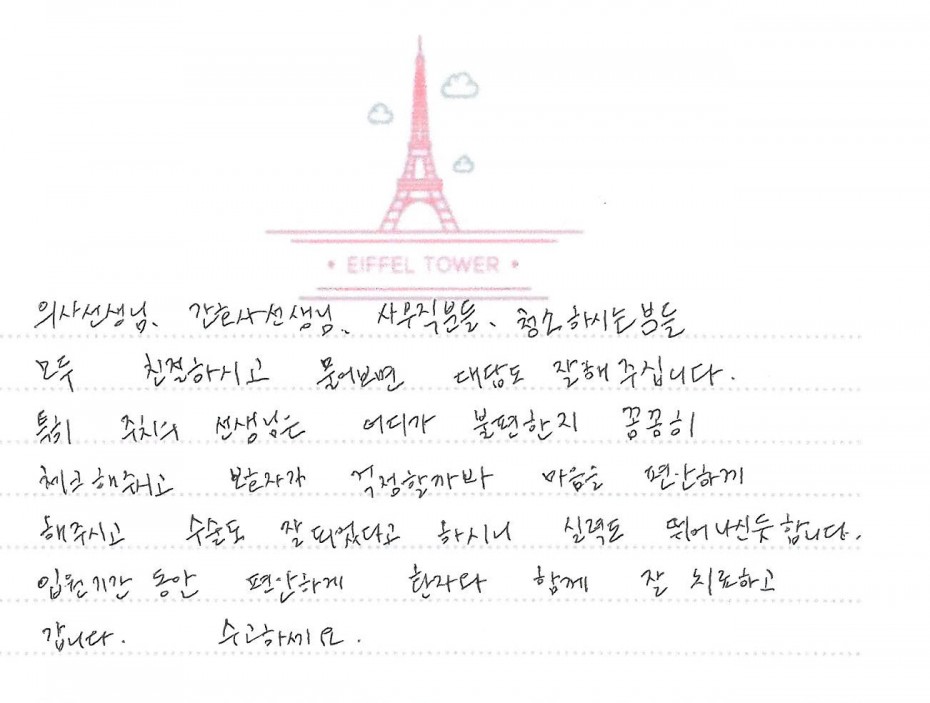 EIFFEL TOWER
의사선생님、 간호사선생님、 사무직분들、 청소하시는분들
모두 친절하시고 물어보면 대답도 잘해 주십니다.
특히 주치의 선생님은 어디가 불편한지 꼼꼼히
체크해주시고 보호자가 걱정할까봐 마음을 편안하게
해주시고 수술도 잘 되었다고 하시니 실력도 뛰어나신듯 합니다.
입원기간 동안 편안하게 환자와 함께 잘 치료하고
갑니다. 수고하세요.